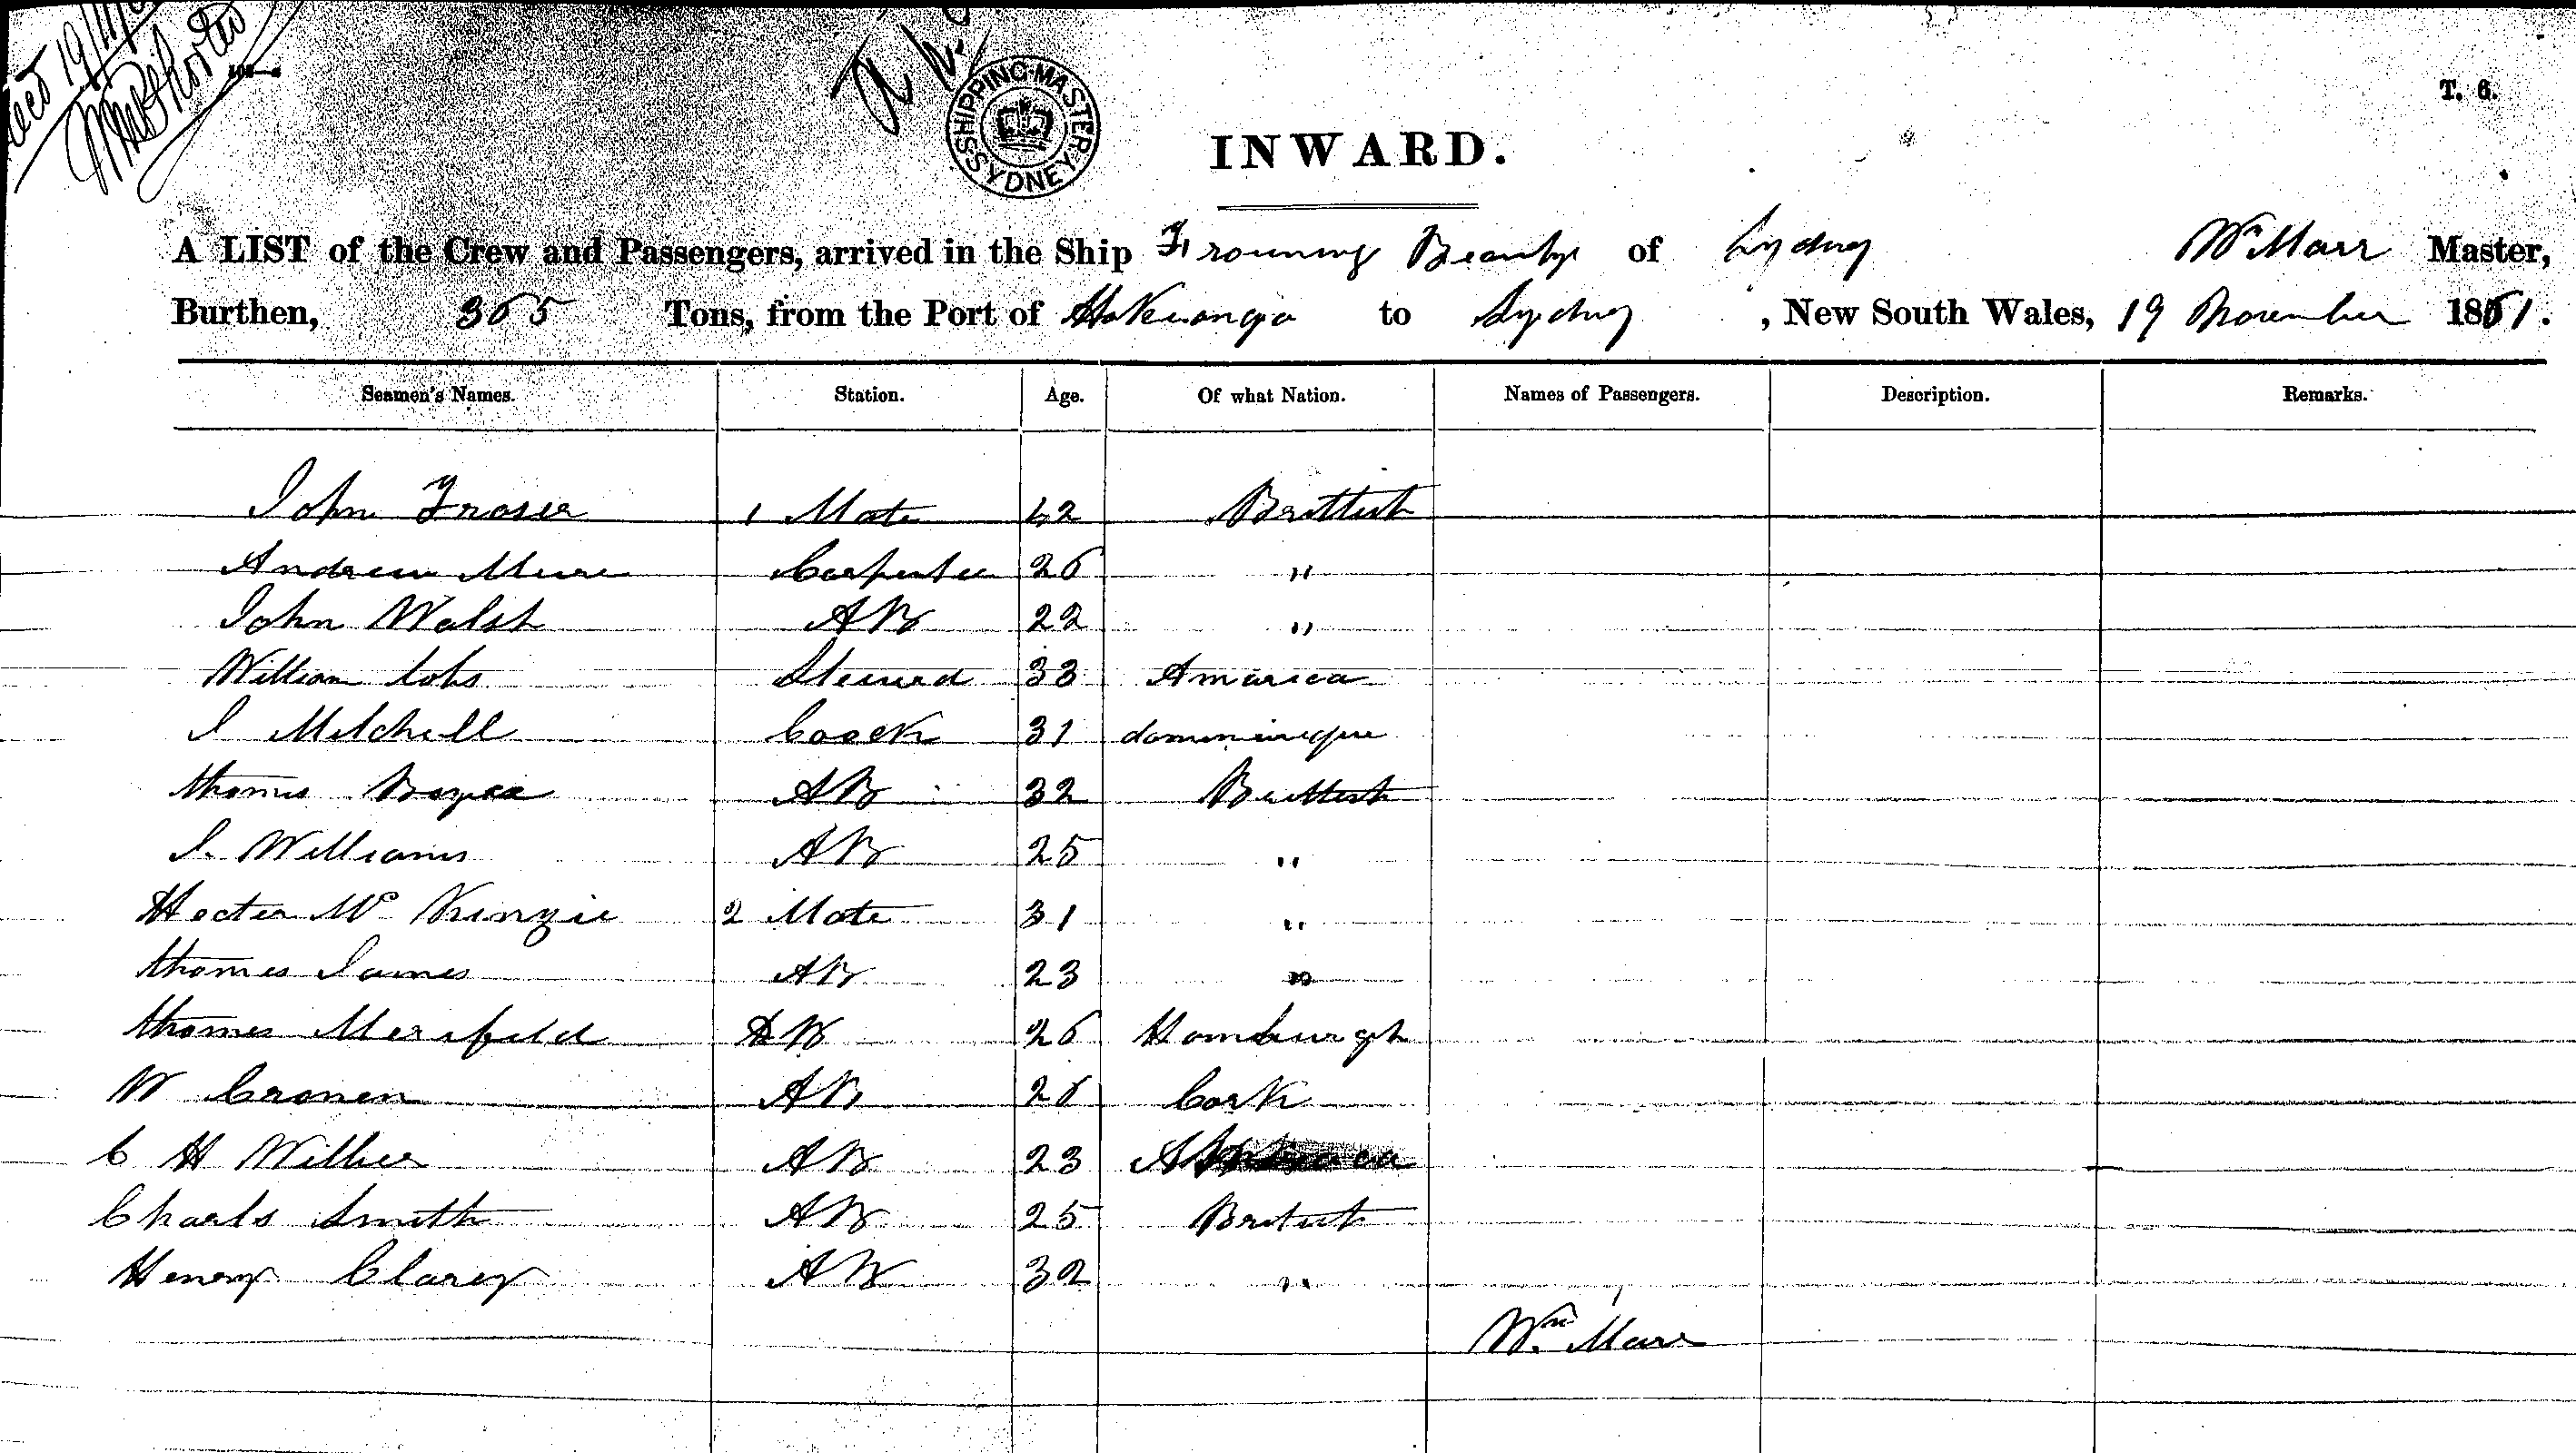 SHIPPING MASTER'S SYDNEY
T. 6.
INWARD.
A LIST of the Crew and Passengers, arrived in the Ship Frowning Beauty of Sydney Wm Marr Master,
Burthen, 365 Tons, from the Port of Hokeanga to Sydney, New South Wales, 19 November 1861.
Seamen's Names. Station. Age. Of what Nation. Names of Passengers. Description. Remarks.
John Fraser 1 Mate 42 Brittish
Andrew Mure Carpenter 26 "
John Walsh AB 22 "
William Steward 33 Amarica
J Mitchell Coock 31 dominique
thomas Boyce AB 32 Brittish
J. Williams AB 25 "
Hecter Mc Kinzie 2 Mate 31 "
thomas James AB 23 "
thomas Merifield AB 26 Hamburgh
W Cronen AB 26 Cork
C H Wilber AB 23
Charls Smith AB 25 British
Henery Clarey AB 32 "
Wm Marr